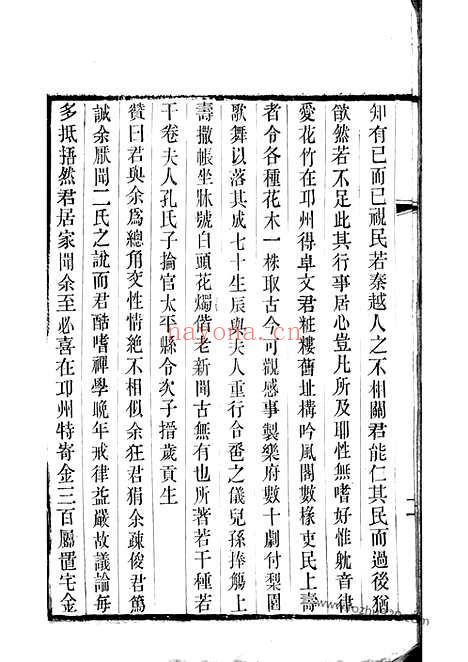 知有己而已視民若秦越人之不相關君能仁其民而過後猶
欿然若不足此其行事居心豈凡所及耶性無嗜好惟躭音律
愛花竹在邛州得卓文君粧樓舊址構吟風閣數椽吏民上壽
者令各種花木一株取古今可觀感事製樂府數十劇付梨園
歌舞以落其成七十生辰與夫人重行合卺之儀兒孫捧觴上
壽撒帳坐牀號白頭花燭偕老新聞古無有也所著若干種若
干卷夫人孔氏子掄官太平縣令次子搢歲貢生
贊曰君與余為總角交性情絕不相似余狂君狷余疎俊君篤
誠余厭聞二氏之說而君酷嗜禪學晚年戒律益嚴故議論每
多抵捂然君居家聞余至必喜在邛州特寄金三百屬置宅金
nayona.cn